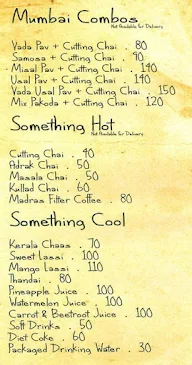 Mumbai Combos
Not Available for Delivery
Vada Pav + Cutting Chai . 80
Samosa + Cutting Chai . 90
Misal Pav + Cutting Chai . 140
Usal Pav + Cutting Chai . 140
Vada Usal Pav + Cutting Chai . 150
Mix Pakoda + Cutting Chai . 120
Something Hot
Not Available for Delivery
Cutting Chai . 40
Adrak Chai . 50
Masala Chai . 50
Kullad Chai . 60
Madras Filter Coffee . 80
Something Cool
Kerala Chaas . 70
Sweet Lassi . 100
Mango Lassi . 110
Thandai . 80
Pineapple Juice . 100
Watermelon Juice . 100
Carrot & Beetroot Juice . 100
Soft Drinks . 50
Diet Coke . 60
Packaged Drinking Water . 30